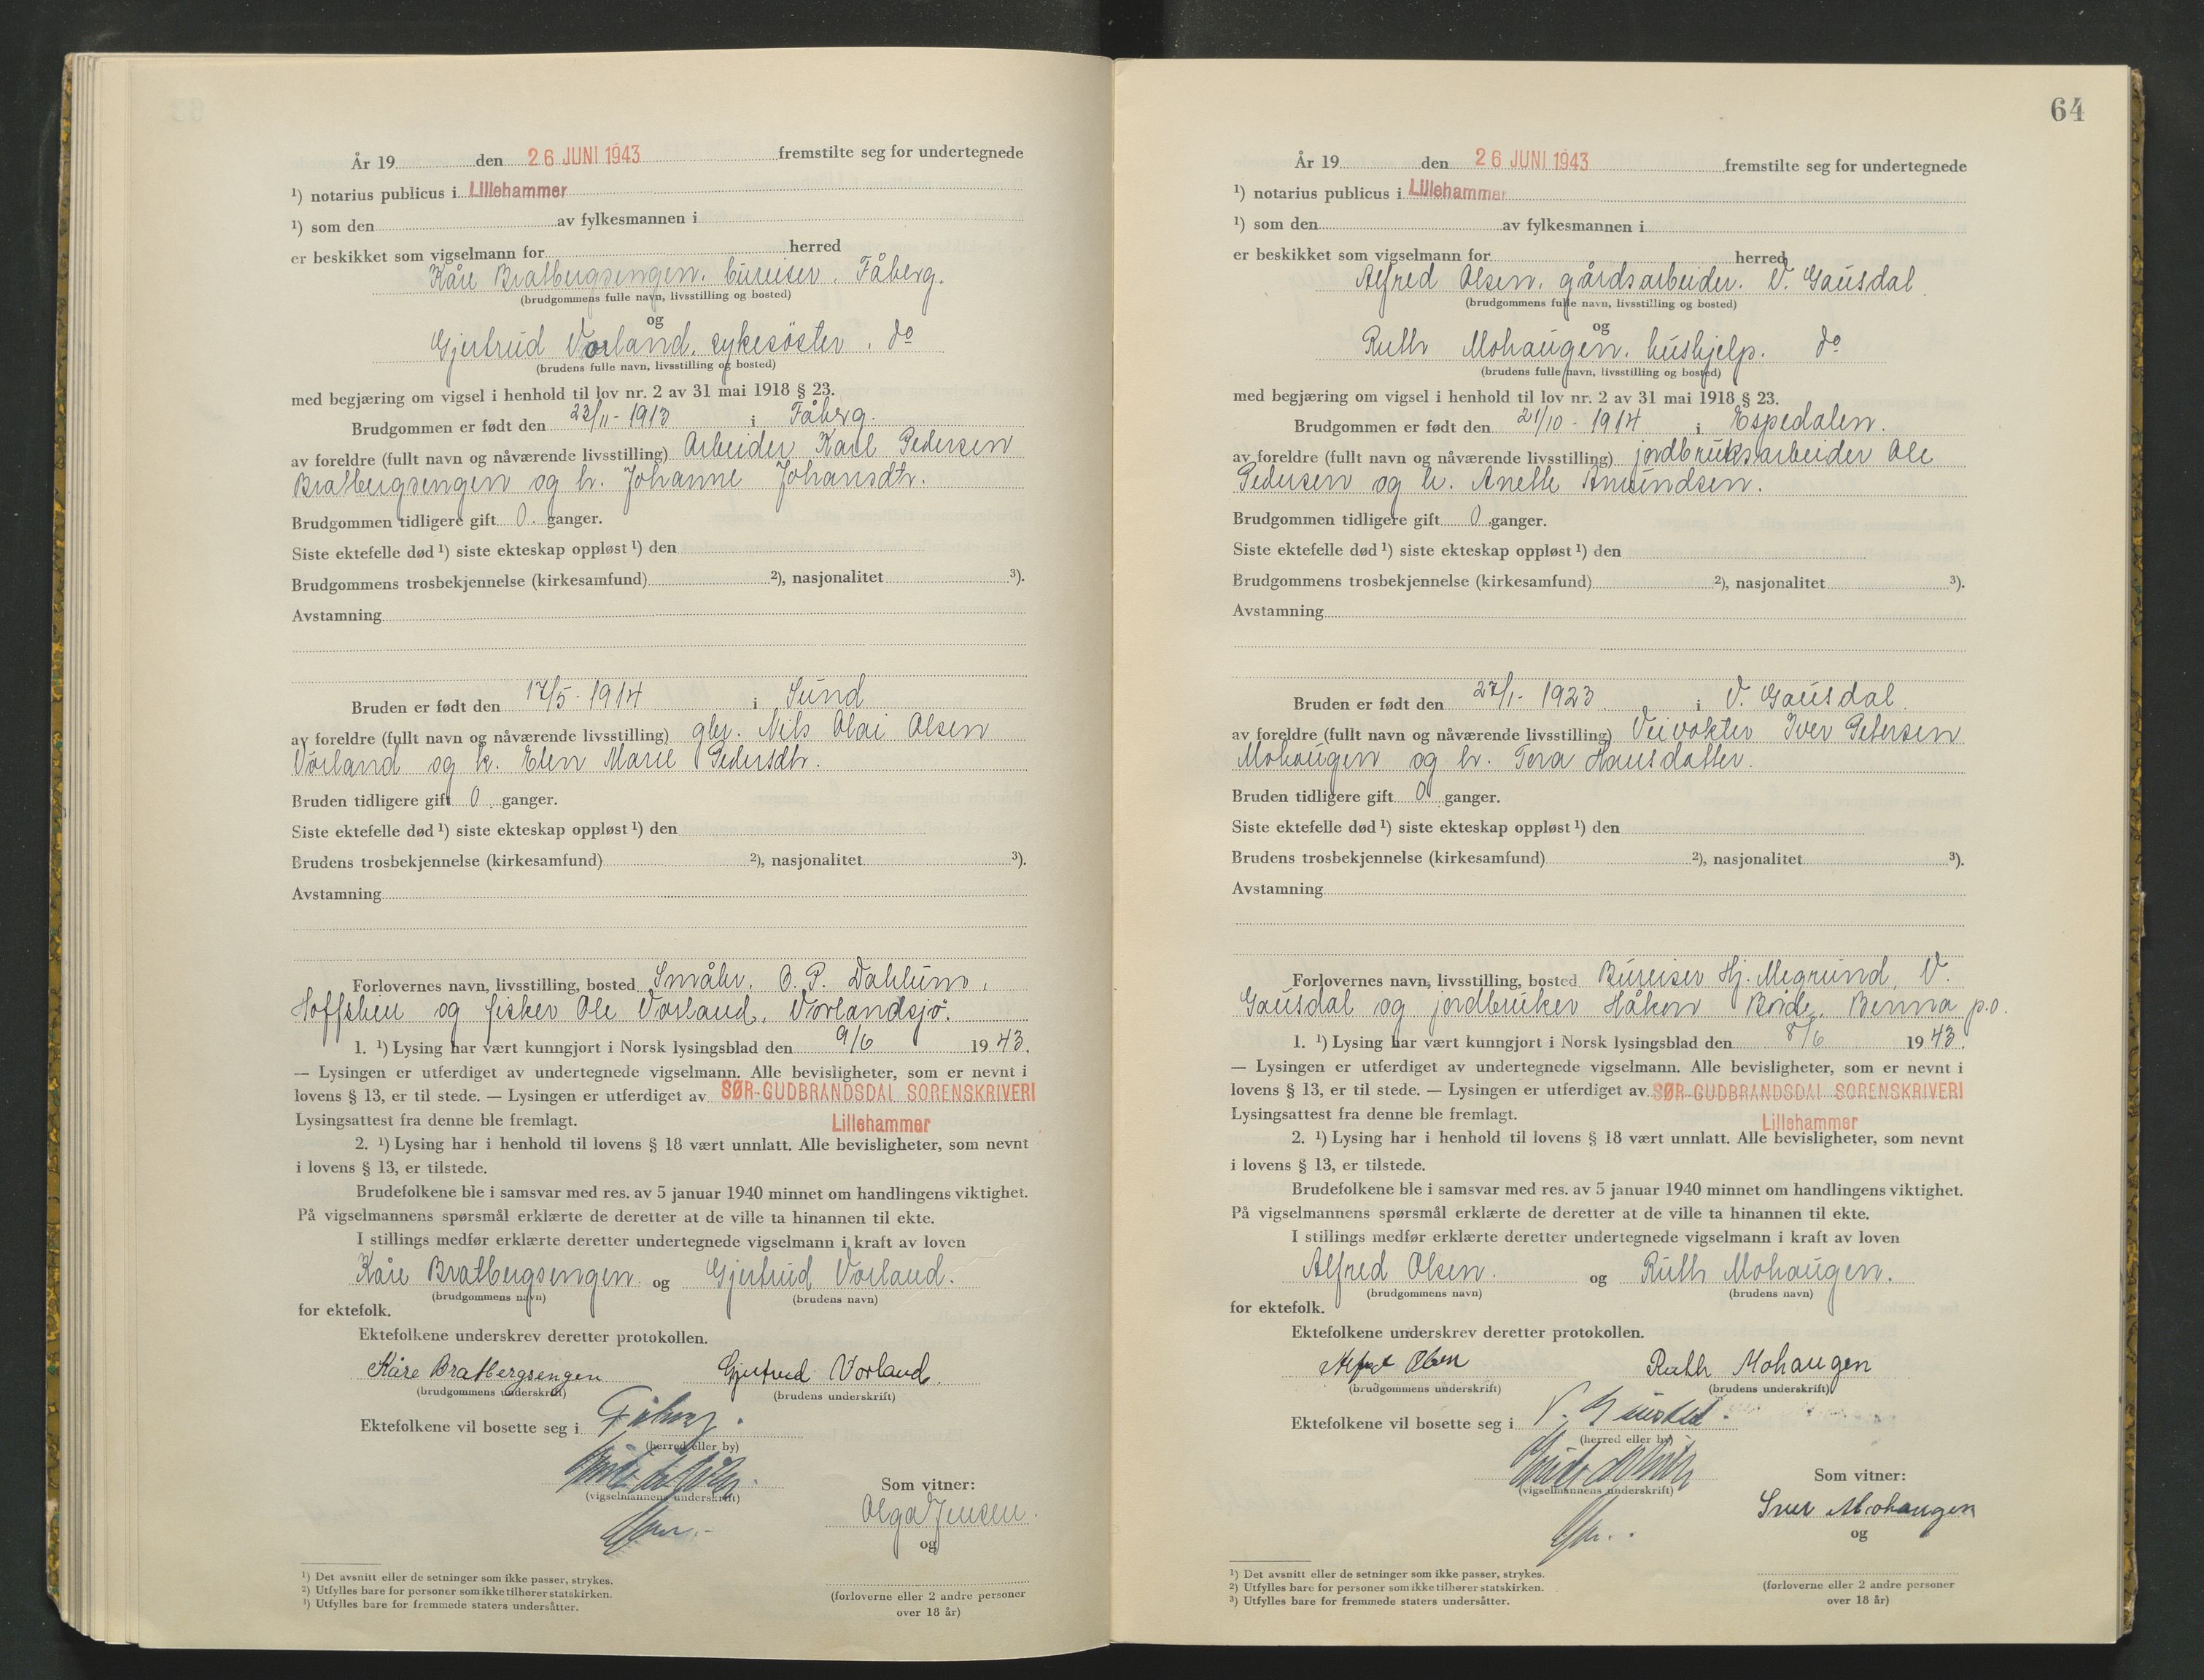 År 19 den 26 JUNI 1943 fremstilte seg for undertegnede
¹) notarius publicus i Lillehammer
¹) som den av fylkesmannen i
er beskikket som vigselmann for herred
Kåre Bratbergsengen, bureiser, Fåberg.
(brudgommens fulle navn, livsstilling og bosted)
og
Gjertrud Vorland, sykesöster, do
(brudens fulle navn, livsstilling og bosted)
med begjæring om vigsel i henhold til lov nr. 2 av 31 mai 1918 § 23.
Brudgommen er født den 23/11 - 1913 i Fåberg.
av foreldre (fullt navn og nåværende livsstilling) Arbeider Karl Pedersen
Bratbergsengen og h. Johanne Johansdtr.
Brudgommen tidligere gift 0 ganger.
Siste ektefelle død ¹) siste ekteskap oppløst ¹) den
Brudgommens trosbekjennelse (kirkesamfund) ²), nasjonalitet ³).
Avstamning
Bruden er født den 17/5 - 1914 i Sund
av foreldre (fullt navn og nåværende livsstilling) gbr. Nils Olai Olsen
Vorland og h. Elen Marie Pedersdtr.
Bruden tidligere gift 0 ganger.
Siste ektefelle død ¹) siste ekteskap oppløst ¹) den
Brudens trosbekjennelse (kirkesamfund) ²), nasjonalitet ³).
Avstamning
Forlovernes navn, livsstilling, bosted Småbr. O. P. Dahlum,
Hoffsheu og fisker Ole Vorland, Vorlandsjö.
1. ¹) Lysing har vært kunngjort i Norsk lysingsblad den 9/6 1943.
— Lysingen er utferdiget av undertegnede vigselmann. Alle bevisligheter, som er nevnt i
lovens § 13, er til stede. — Lysingen er utferdiget av SØR-GUDBRANDSDAL SORENSKRIVERI
Lysingsattest fra denne ble fremlagt. Lillehammer
2. ¹) Lysing har i henhold til lovens § 18 vært unnlatt. Alle bevisligheter, som nevnt
i lovens § 13, er tilstede.
Brudefolkene ble i samsvar med res. av 5 januar 1940 minnet om handlingens viktighet.
På vigselmannens spørsmål erklærte de deretter at de ville ta hinannen til ekte.
I stillings medfør erklærte deretter undertegnede vigselmann i kraft av loven
Kåre Bratbergsengen og Gjertrud Vorland.
(brudgommens navn) (brudens navn)
for ektefolk.
Ektefolkene underskrev deretter protokollen.
Kåre Bratbergsengen Gjertrud Vorland.
(brudgommens underskrift) (brudens underskrift)
Ektefolkene vil bosette seg i Fåberg.
(herred eller by)
(vigselmannens underskrift)
Som vitner:
Olga Jensen.
og
¹) Det avsnitt eller de setninger som ikke passer, strykes.
²) Utfylles bare for personer som ikke tilhører statskirken.
³) Utfylles bare for fremmede staters undersåtter.
(forloverne eller 2 andre personer
over 18 år)
64
År 19 den 26 JUNI 1943 fremstilte seg for undertegnede
¹) notarius publicus i Lillehammer
¹) som den av fylkesmannen i
er beskikket som vigselmann for herred
Alfred Olsen, gårdsarbeider. V. Gausdal
(brudgommens fulle navn, livsstilling og bosted)
og
Ruth Mohaugen, hushjelp. do
(brudens fulle navn, livsstilling og bosted)
med begjæring om vigsel i henhold til lov nr. 2 av 31 mai 1918 § 23.
Brudgommen er født den 21/10 - 1914 i Espedalen.
av foreldre (fullt navn og nåværende livsstilling) jordbruksarbeider Ole
Pedersen og h. Anette Amundsen.
Brudgommen tidligere gift 0 ganger.
Siste ektefelle død ¹) siste ekteskap oppløst ¹) den
Brudgommens trosbekjennelse (kirkesamfund) ²), nasjonalitet ³).
Avstamning
Bruden er født den 27/1 - 1923 i V. Gausdal.
av foreldre (fullt navn og nåværende livsstilling) Veivokter Iver Petersen
Mohaugen og h. Tora Hansdatter.
Bruden tidligere gift 0 ganger.
Siste ektefelle død ¹) siste ekteskap oppløst ¹) den
Brudens trosbekjennelse (kirkesamfund) ²), nasjonalitet ³).
Avstamning
Forlovernes navn, livsstilling, bosted Bureiser Hj. Megrund, V.
Gausdal og jordbruker Håkon Böide, Benna p.o.
1. ¹) Lysing har vært kunngjort i Norsk lysingsblad den 8/6 1943.
— Lysingen er utferdiget av undertegnede vigselmann. Alle bevisligheter, som er nevnt i
lovens § 13, er til stede. — Lysingen er utferdiget av SØR-GUDBRANDSDAL SORENSKRIVERI
Lysingsattest fra denne ble fremlagt. Lillehammer
2. ¹) Lysing har i henhold til lovens § 18 vært unnlatt. Alle bevisligheter, som nevnt
i lovens § 13, er tilstede.
Brudefolkene ble i samsvar med res. av 5 januar 1940 minnet om handlingens viktighet.
På vigselmannens spørsmål erklærte de deretter at de ville ta hinannen til ekte.
I stillings medfør erklærte deretter undertegnede vigselmann i kraft av loven
Alfred Olsen. og Ruth Mohaugen.
(brudgommens navn) (brudens navn)
for ektefolk.
Ektefolkene underskrev deretter protokollen.
Alfred Olsen Ruth Mohaugen
(brudgommens underskrift) (brudens underskrift)
Ektefolkene vil bosette seg i V. Gausdal.
(herred eller by)
(vigselmannens underskrift)
Som vitner:
Iver Mohaugen
og
¹) Det avsnitt eller de setninger som ikke passer, strykes.
²) Utfylles bare for personer som ikke tilhører statskirken.
³) Utfylles bare for fremmede staters undersåtter.
(forloverne eller 2 andre personer
over 18 år)